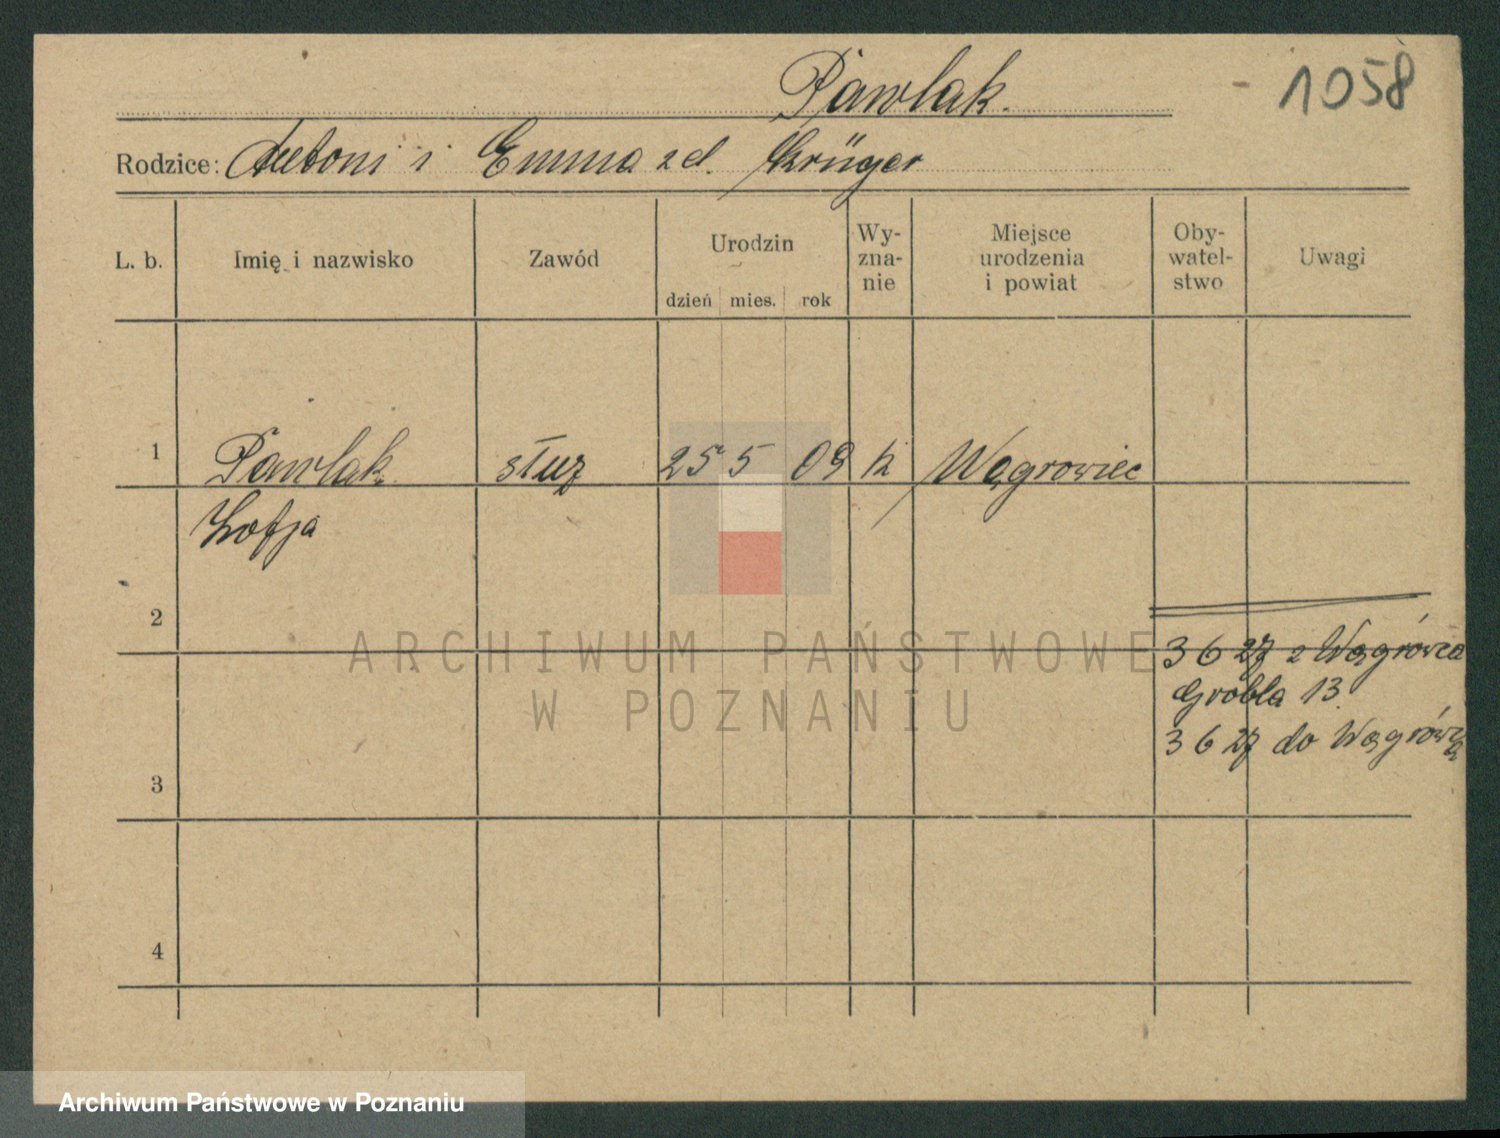 Pawlak.
1058
Rodzice: Antoni i Emma zd. Krüger
L. b.
Imię i nazwisko
Zawód
Urodzin
dzień mies. rok
Wy-
zna-
nie
Miejsce
urodzenia
i powiat
Oby-
watel-
stwo
Uwagi
1 Pawlak służ 25 5 09 k Wągrowiec
Zofja
2
3 6 27 z Wągrówca
Grobla 13.
3 6 27 do Wągrówca
3
4
ARCHIWUM PAŃSTWOWE
W POZNANIU
Archiwum Państwowe w Poznaniu